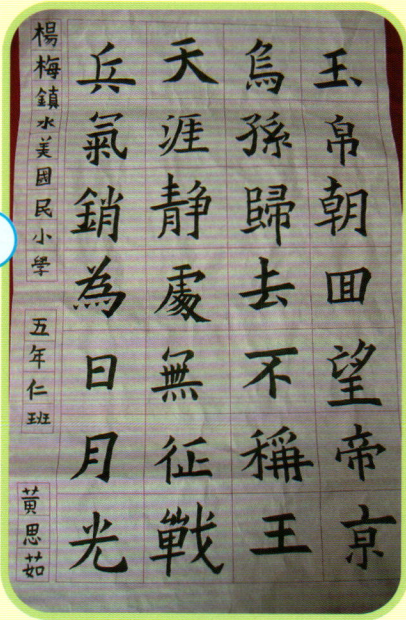 玉帛朝回望帝京
烏孫歸去不稱王
天涯静處無征戰
兵氣銷為日月光
楊梅鎮水美國民小學 五年仁班 黃思茹